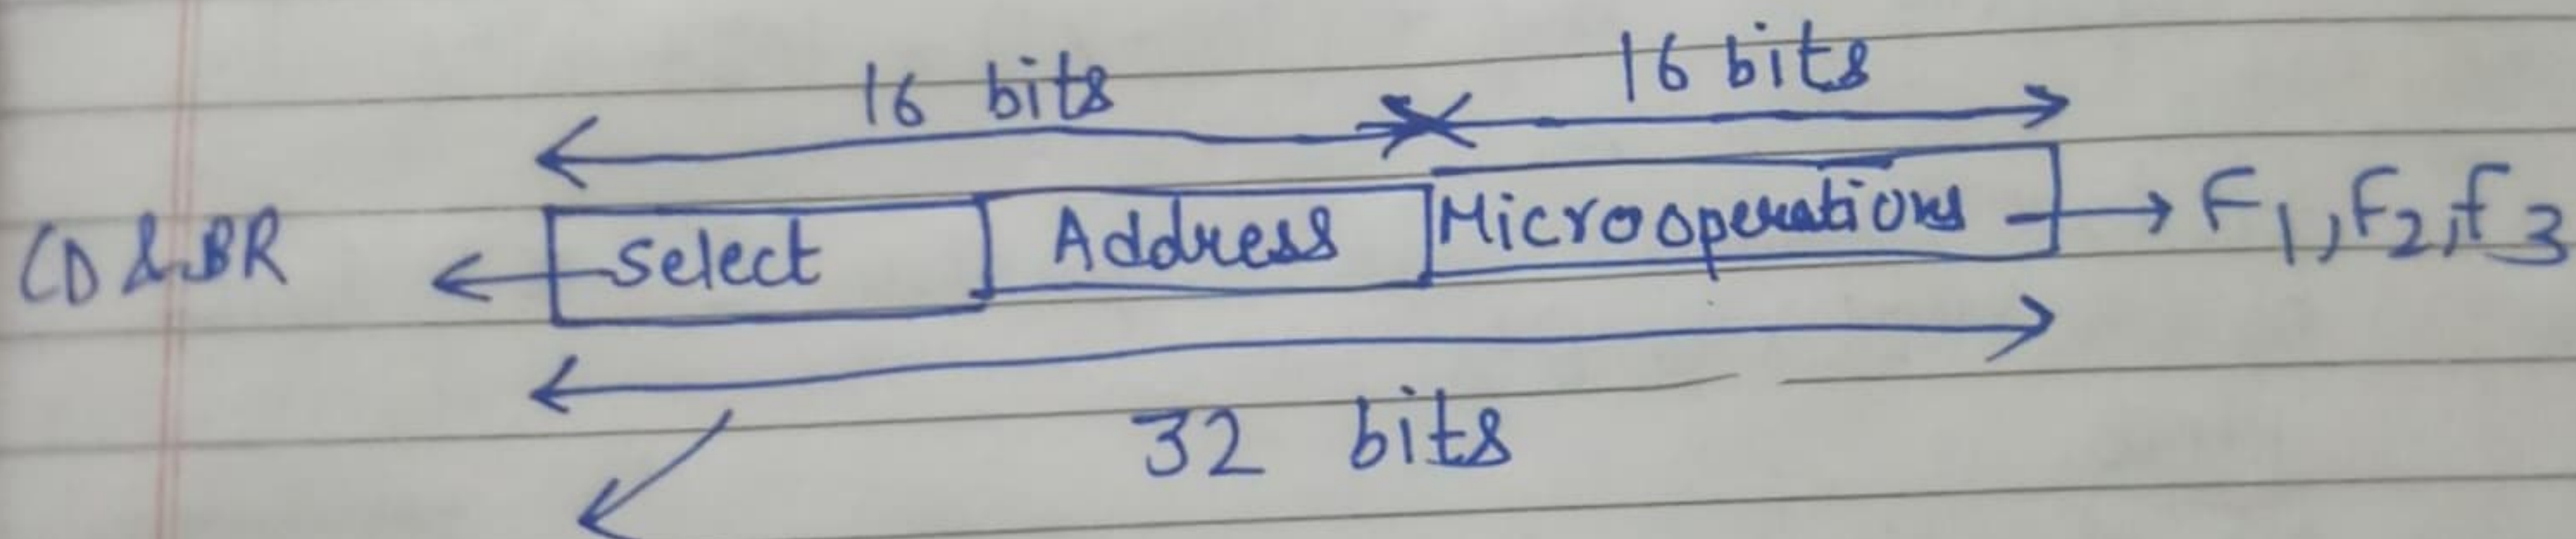 16 bits 16 bits
CD & BR Select Address Microoperations F1, F2, F3
32 bits